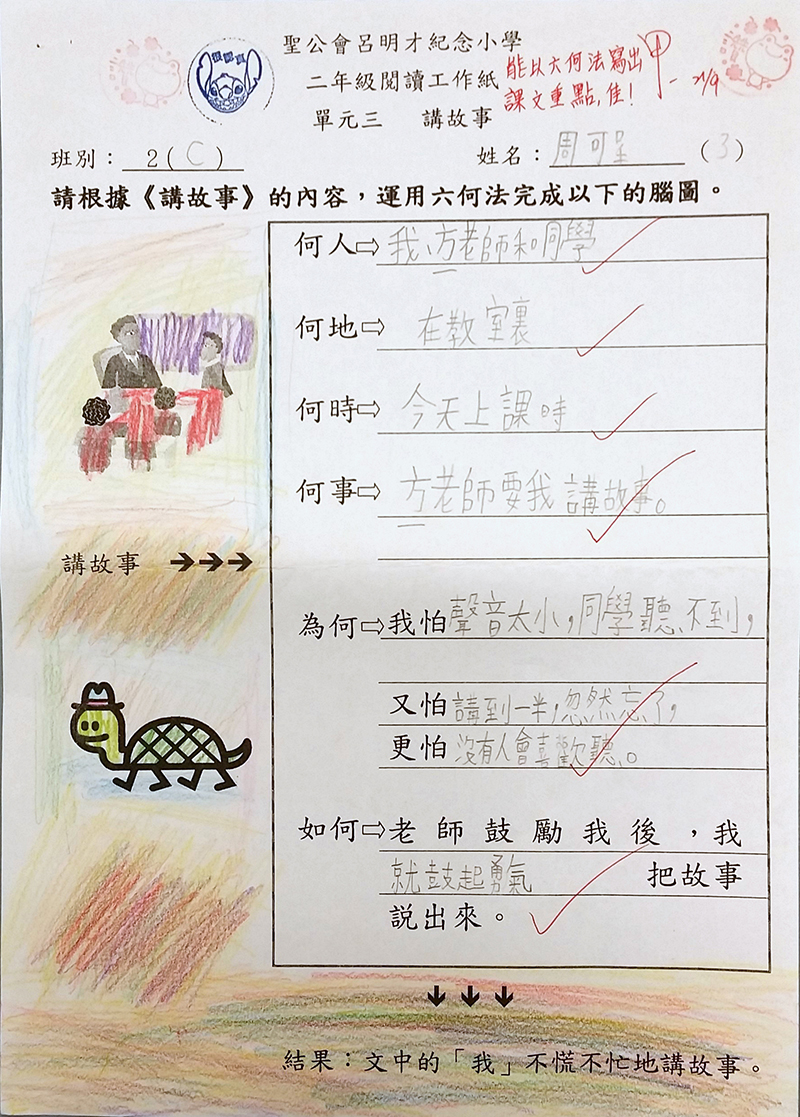 聖公會呂明才紀念小學
二年級閱讀工作紙
單元三 講故事
能以六何法寫出
課文重點,佳!
甲
21/9
班別: 2( C )
姓名: 周可呈 (3)
請根據《講故事》的內容,運用六何法完成以下的腦圖。
何人⇨ 我、方老師和同學
何地⇨ 在教室裏
何時⇨ 今天上課時
何事⇨ 方老師要我講故事。
講故事 →→→
為何⇨我怕聲音太小,同學聽不到,
又怕講到一半,忽然忘了,
更怕沒有人會喜歡聽。
如何⇨老師鼓勵我後,我
就鼓起勇氣 把故事
說出來。
↓↓↓
結果:文中的「我」不慌不忙地講故事。